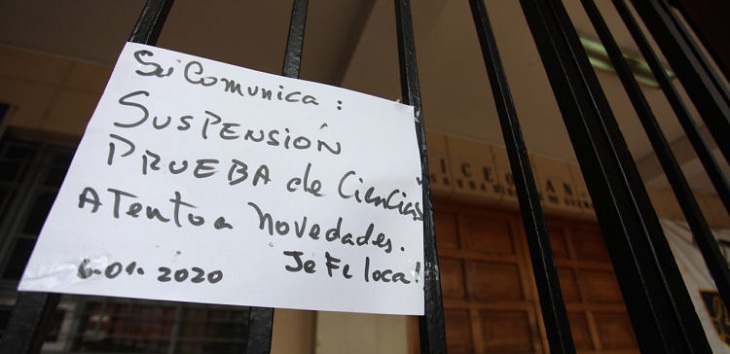 Se Comunica:
SUSPENSIÓN
PRUEBA de Ciencias
Atento a Novedades.
6-01-2020 Jefe loca!
ICEO